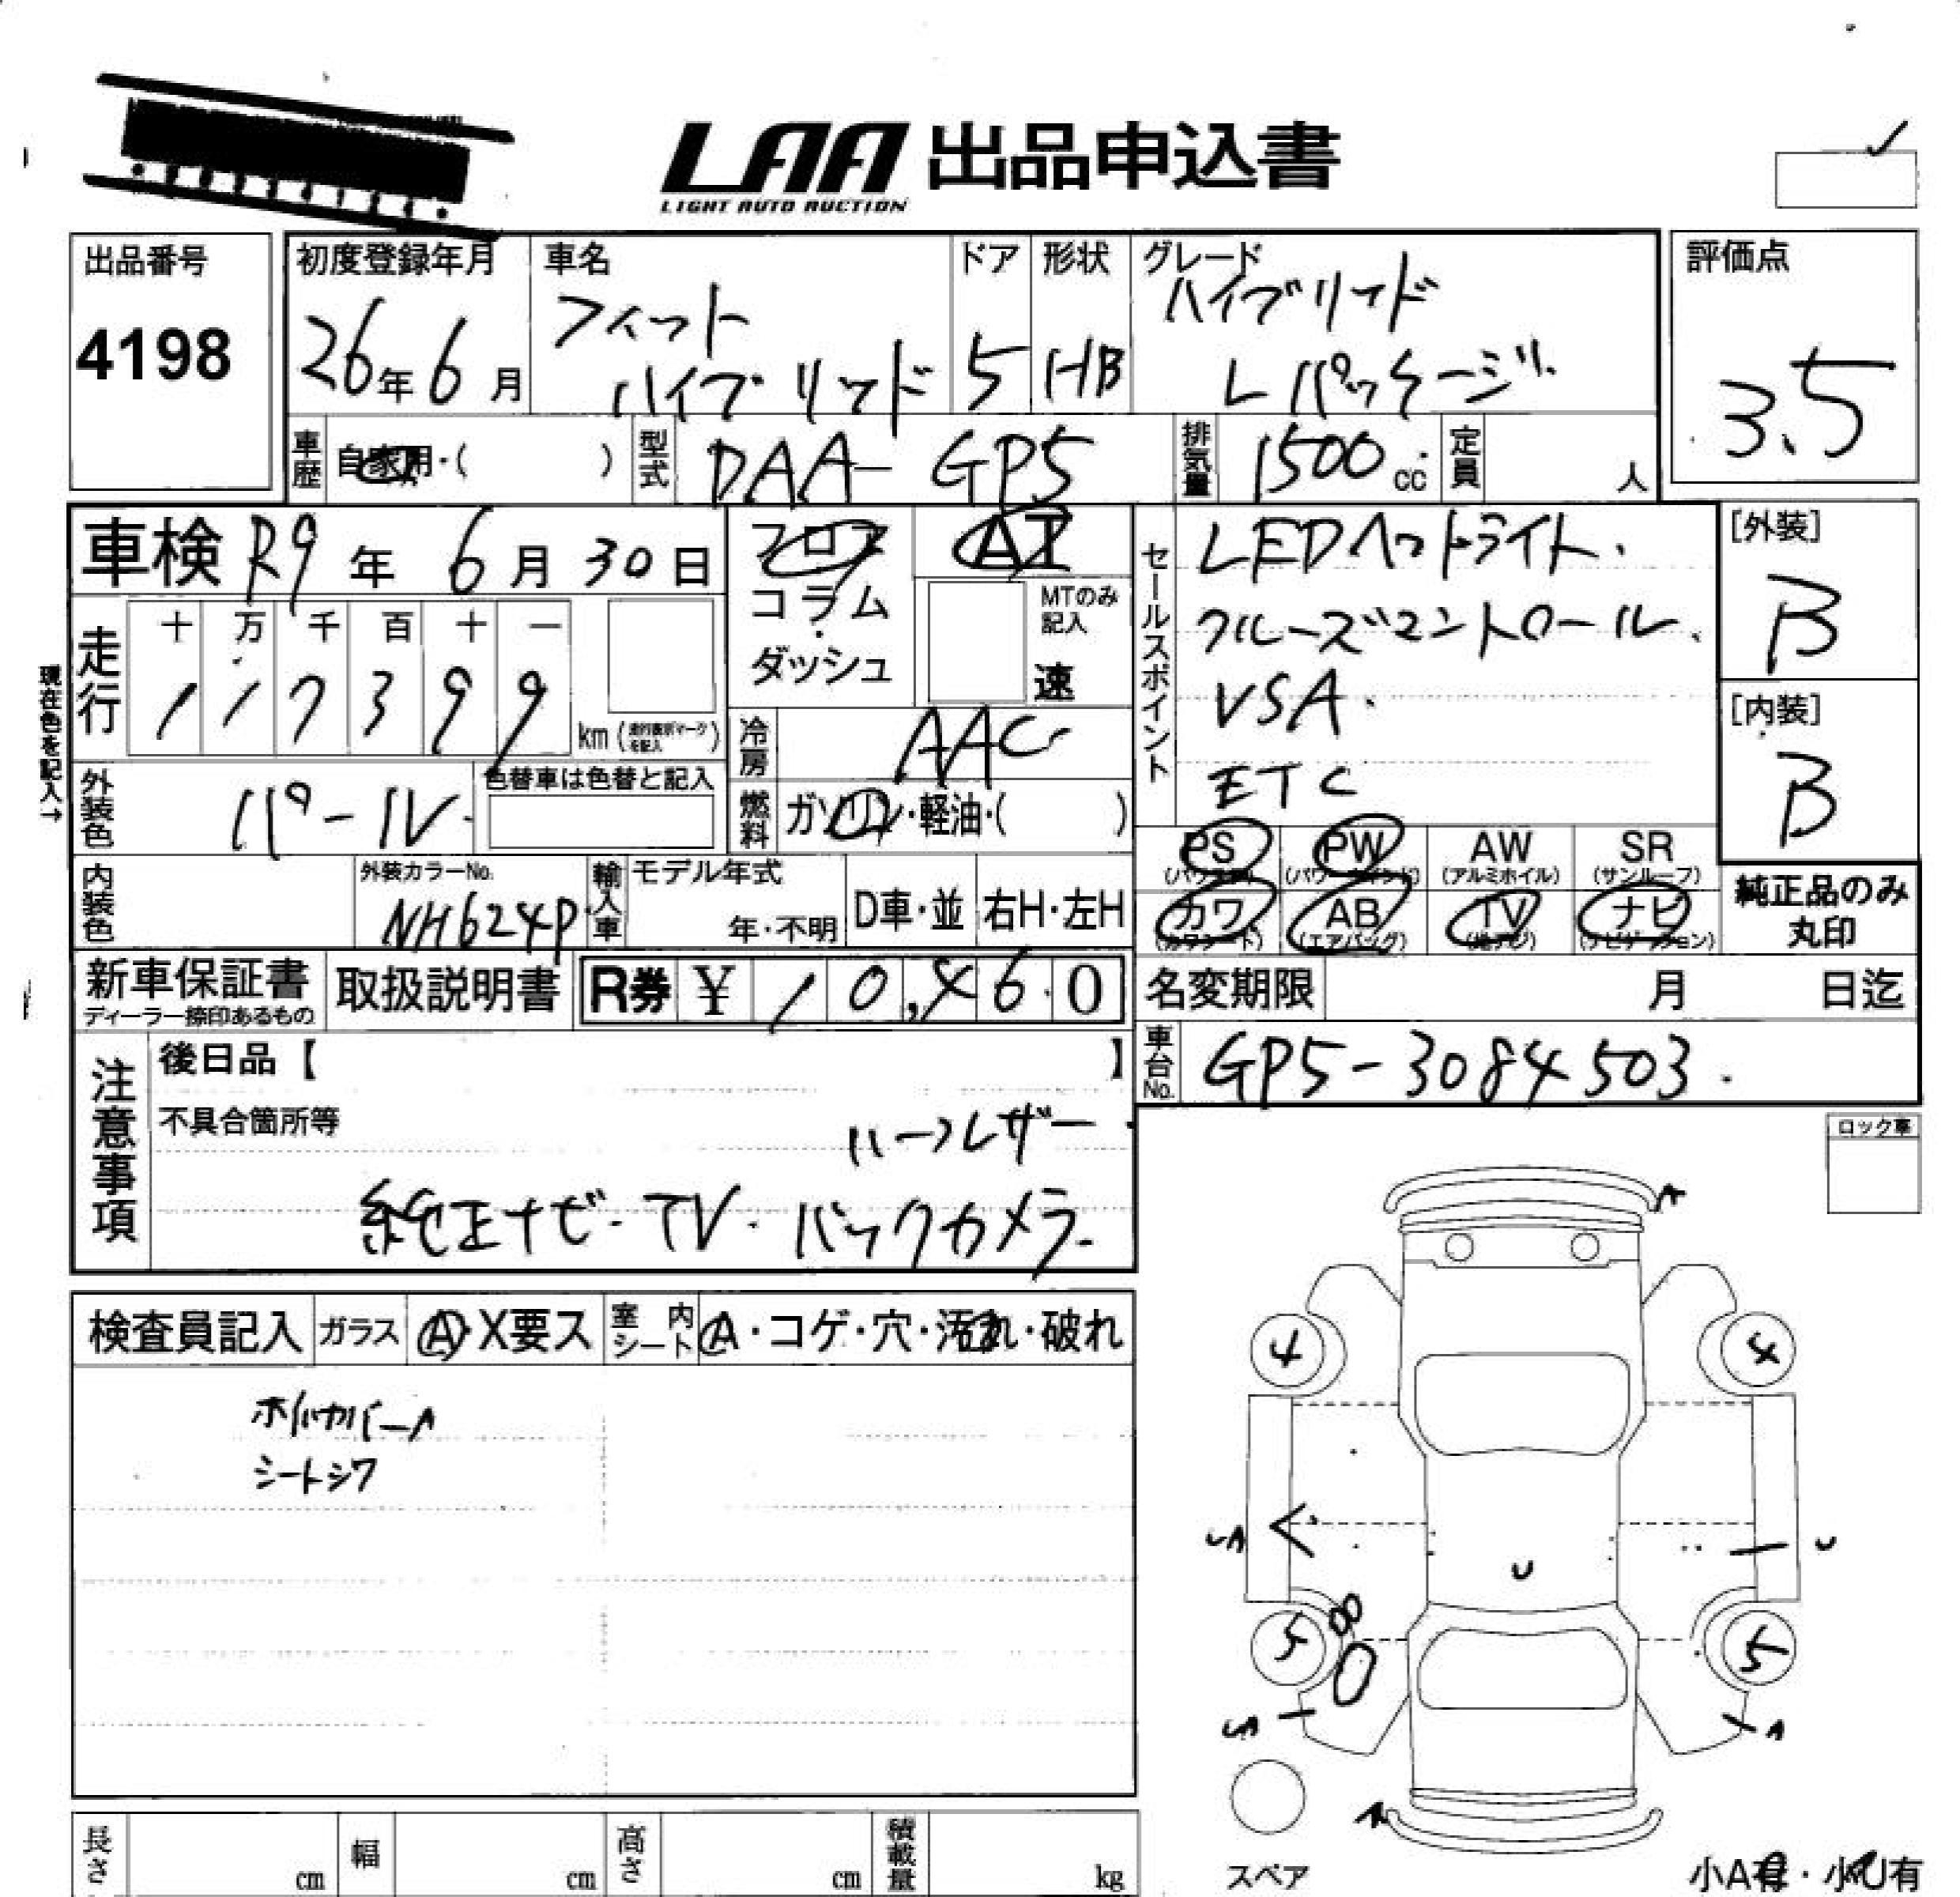 LAA 出品申込書
LIGHT AUTO AUCTION
出品番号
4198
初度登録年月
26年6月
車名
フィット
ハイブリッド
ドア
5
形状
HB
グレード
ハイブリッド
Lパッケージ
評価点
3.5
車歴
自家用・( )
型式
DAA-GP5
排気量
1500cc
定員
人
車検 R9年 6月 30日
フロア
コラム
・
ダッシュ
AT
MTのみ
記入
速
走行
十 万 千 百 十 一
1 1 7 3 9 9
km
現在色を記入→
冷房
AAC
外装色
パール
色替車は色替と記入
燃料
ガソリン・軽油・( )
内装色
外装カラーNo.
NH624P
輸入車
モデル年式
年・不明
D車・並
右H・左H
セールスポイント
LEDヘットライト.
クルーズコントロール.
VSA.
ETC
[外装]
B
[内装]
B
PS PW AW SR
(パワステ) (パワーウインド) (アルミホイル) (サンルーフ)
カワ AB TV ナビ
(カワシート) (エアバッグ) (地デジ) (ナビゲーション)
純正品のみ
丸印
新車保証書
ディーラー捺印あるもの
取扱説明書
R券 ¥10,460
名変期限 月 日迄
車台No.
GP5-3084503.
注意事項
後日品【 】
不具合箇所等
ハーフレザー
純正ナビ・TV・バックカメラ
ロック車
検査員記入
ガラス
A・X要ス
室内シート
A・コゲ・穴・汚れ・破れ
ホイルカバーA
シートシワ
A
4 4
UA U
U
5 5
UA A
A
スペア
小A有・小U有
長さ cm
幅 cm
高さ cm
積載量 kg